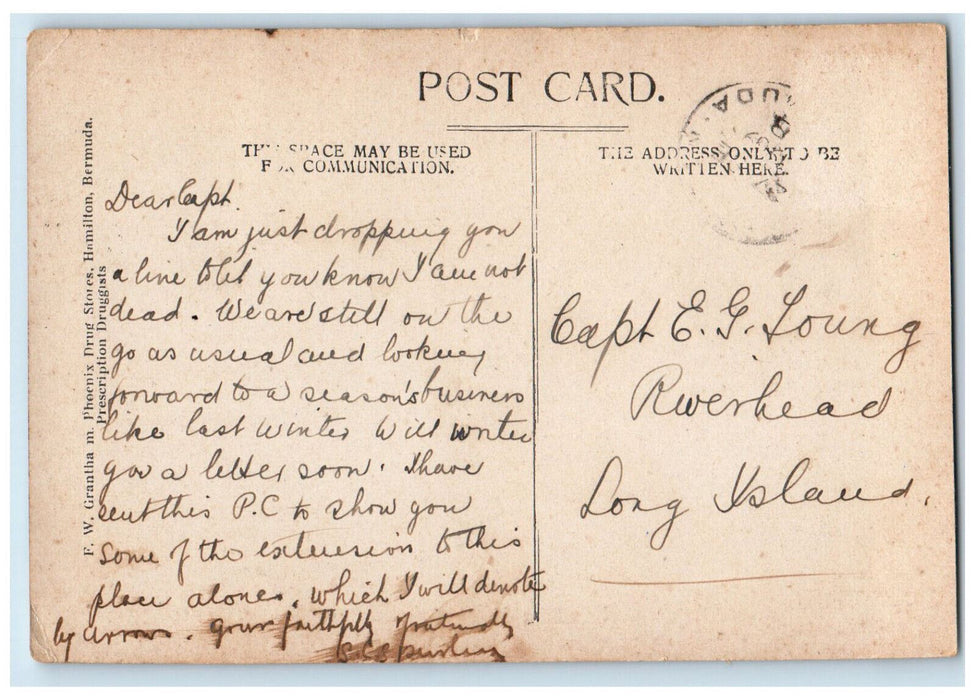 POST CARD.
THIS SPACE MAY BE USED
FOR COMMUNICATION.
THE ADDRESS ONLY TO BE
WRITTEN HERE.
F. W. Grantham Phoenix Drug Stores, Hamilton, Bermuda.
Prescription Druggists
Dear Capt.
I am just dropping you
a line to let you know I am not
dead. We are still on the
go as usual and looking
forward to a season's business
like last winter will write
you a letter soon. I have
sent this P.C to show you
some of the extension to this
place alone. which I will denote
by arrows. your faithfully
Capt E. G. Young
Riverhead
Long Island.